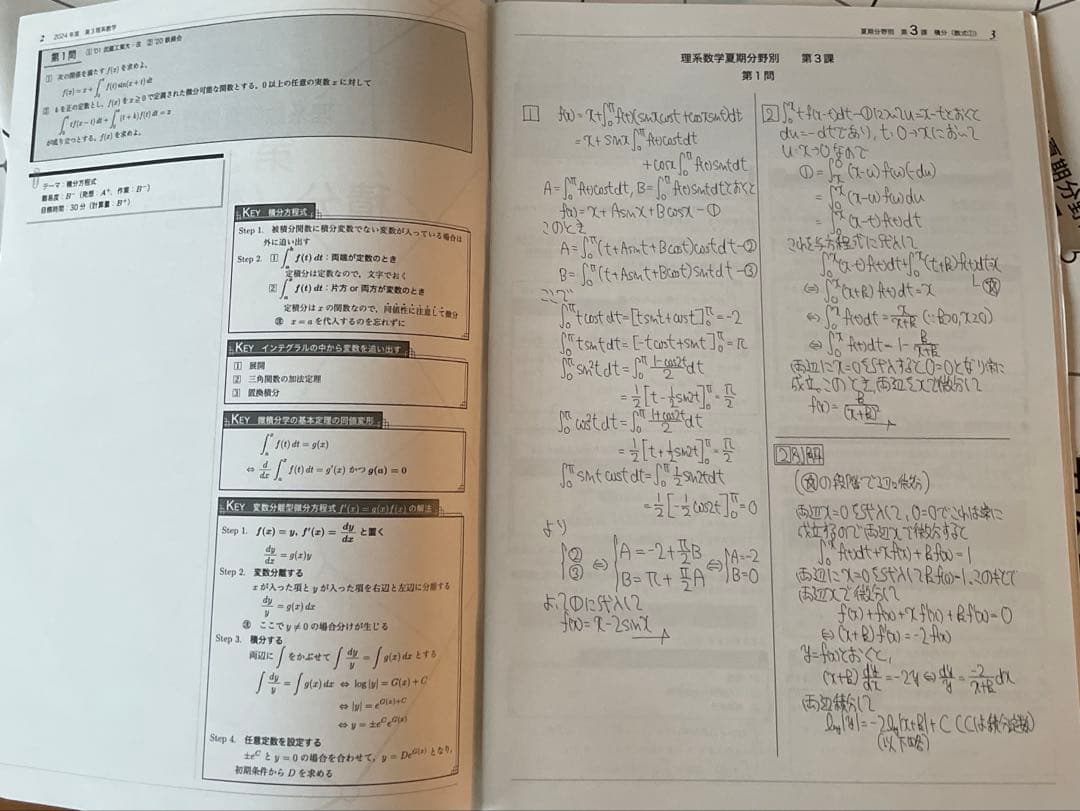 2 2024年度 第3理系数学
第1問 ① '01 武蔵工業大・改 ② '20 鉄緑会
① 次の関係を満たす f(x) を求めよ。
f(x) = x + ∫₀^π f(t) sin(x+t) dt
② k を正の定数とし、f(x) を x≧0 で定義された微分可能な関数とする。0以上の任意の実数 x に対して
∫₀^x tf(x−t)dt + ∫₀^x (t+k)f(t)dt = x
が成り立つとする。f(x) を求めよ。
テーマ:積分方程式
難易度:B⁻(発想:A⁺, 作業:B⁻)
目標時間:30分(計算量:B⁺)
KEY 積分方程式
Step 1. 被積分関数に積分変数でない変数が入っている場合は
外に追い出す
Step 2. ① ∫ₐ^b f(t) dt:両端が定数のとき
定積分は定数なので、文字でおく
② ∫ₐ^x f(t) dt:片方 or 両方が変数のとき
定積分は x の関数なので、同値性に注意して微分
㊟ x = a を代入するのを忘れずに
KEY インテグラルの中から変数を追い出す
① 展開
② 三角関数の加法定理
③ 置換積分
KEY 微積分学の基本定理の同値変形
∫ₐ^x f(t) dt = g(x)
⇔ d/dx ∫ₐ^x f(t) dt = g'(x) かつ g(a) = 0
KEY 変数分離型微分方程式 f'(x) = g(x)f(x) の解法
Step 1. f(x) = y, f'(x) = dy/dx と置く
dy/dx = g(x)y
Step 2. 変数分離する
x が入った項と y が入った項を右辺と左辺に分離する
dy/y = g(x) dx
㊟ ここで y ≠ 0 の場合分けが生じる
Step 3. 積分する
両辺に ∫ をかぶせて ∫ dy/y = ∫ g(x) dx とする
∫ dy/y = ∫ g(x) dx ⇔ log|y| = G(x) + C
⇔ |y| = e^{G(x)+C}
⇔ y = ±e^C e^{G(x)}
Step 4. 任意定数を設定する
±e^C と y = 0 の場合を合わせて, y = De^{G(x)} となり,
初期条件から D を求める
夏期分野別 第3課 積分(数式①) 3
理系数学夏期分野別 第3課
第1問
1 f(x) = x+∫₀^π f(t)(sinxcost+cosxsint)dt
= x+sinx∫₀^π f(t)costdt
+cosx∫₀^π f(t)sintdt
A=∫₀^π f(t)costdt, B=∫₀^π f(t)sintdtとおくと
f(x)=x+Asinx+Bcosx−①
このとき
A=∫₀^π(t+Asint+Bcost)costdt−②
B=∫₀^π(t+Asint+Bcost)sintdt−③
ここで
∫₀^π tcostdt=[tsint+cost]₀^π=−2
∫₀^π tsintdt=[−tcost+sint]₀^π=π
∫₀^π sin²tdt=∫₀^π (1−cos2t)/2 dt
=1/2[t−1/2sin2t]₀^π=π/2
∫₀^π cos²tdt=∫₀^π (1+cos2t)/2 dt
=1/2[t+1/2sin2t]₀^π=π/2
∫₀^π sintcostdt=∫₀^π 1/2sin2tdt
=1/2[−1/2cos2t]₀^π=0
より
{② ③ ⇔ {A=−2+π/2B B=π+π/2A ⇔ {A=−2 B=0
よって①に代入して
f(x)=x−2sinx
2 ∫₀^x tf(x−t)dt−①についてu=x−tとおくと
du=−dtであり, t:0→xにおいて
u:x→0なので
①=∫ₓ^0 (x−u)f(u)(−du)
=∫₀^x (x−u)f(u)du
=∫₀^x (x−t)f(t)dt
これを与方程式に代入して
∫₀^x(x−t)f(t)dt+∫₀^x(t+k)f(t)dt=x
⇔∫₀^x(x+k)f(t)dt=x ☆
⇔∫₀^x f(t)dt=x/(x+k) (∵k>0, x≧0)
⇔∫₀^x f(t)dt=1−k/(x+k)
両辺にx=0を代入すると0=0となり常に
成立。このとき、両辺をxで微分して
f(x)=k/(x+k)²
2別解
(☆の段階で2回微分)
両辺x=0を代入して, 0=0でこれは常に
成立するので両辺xで微分すると
∫₀^x f(t)dt+xf(x)+kf(x)=1
両辺にx=0を代入してkf(0)=1, このもとで
両辺xで微分して
f(x)+f(x)+xf'(x)+kf'(x)=0
⇔(x+k)f'(x)=−2f(x)
y=f(x)とおくと,
(x+k)dy/dx=−2y⇔dy/y=−2/(x+k) dx
両辺積分して
log|y|=−2log|x+k|+C (Cは積分定数)
(以下略)